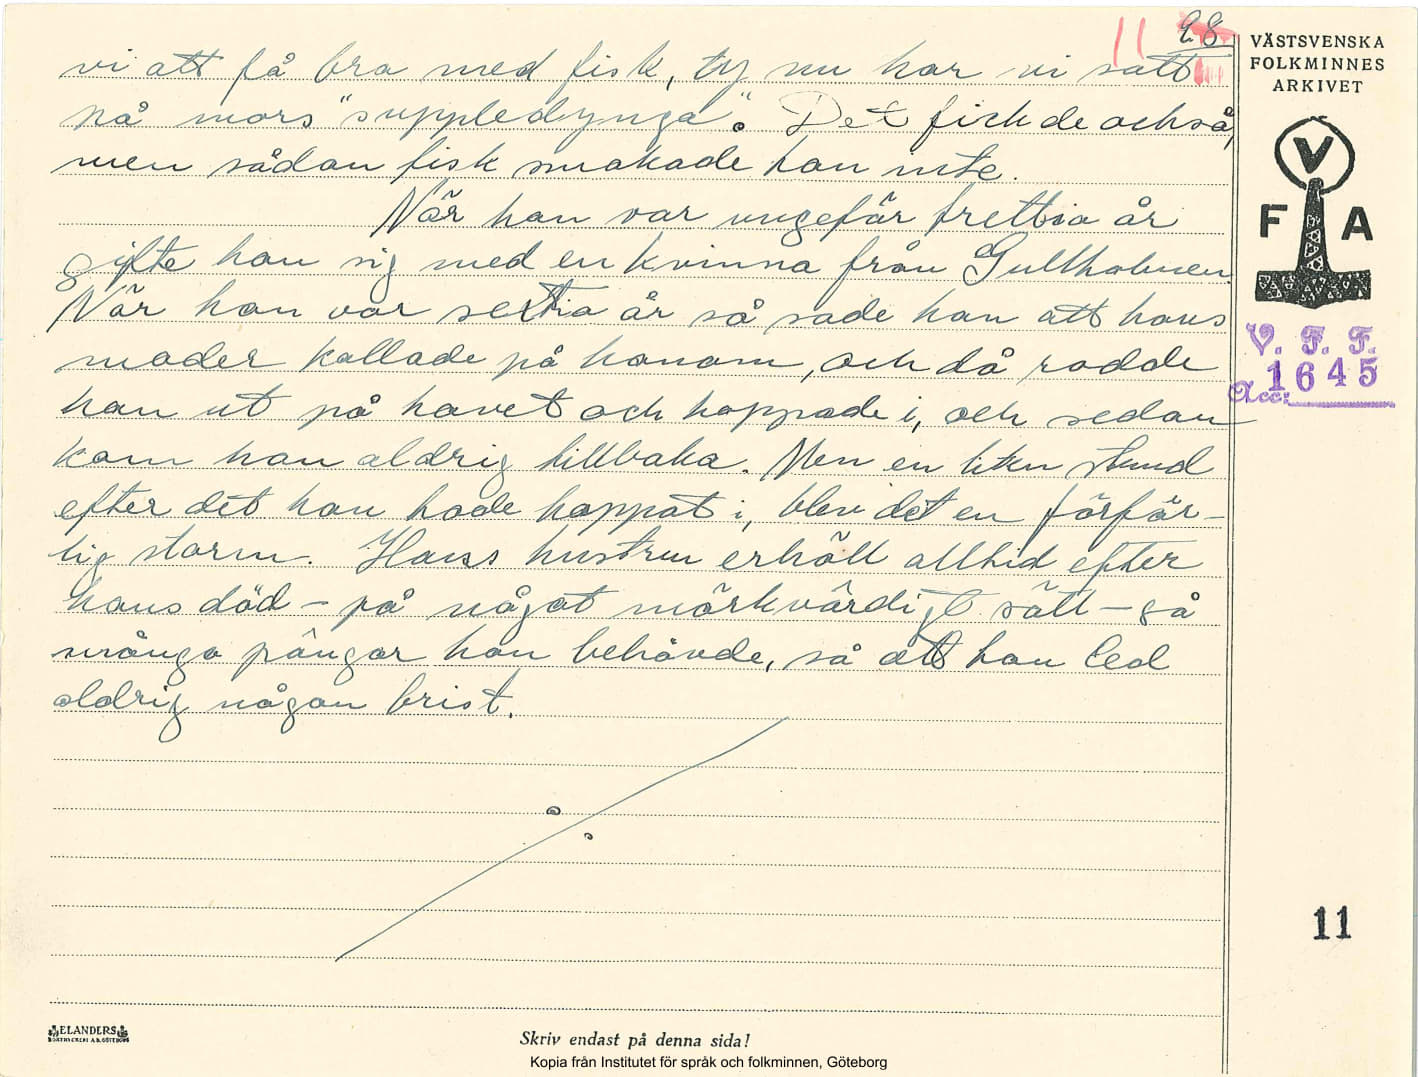 11 28
vi att få bra med fisk, ty nu har vi satt
på mors "suppledynga". Det fick de också,
men sådan fisk smakade han inte.
När han var ungefär trettio år
gifte han sig med en kvinna från Gullholmen.
När han var sextio år så sade han att hans
moder kallade på honom, och då rodde
han ut på havet och hoppade i, och sedan
kom han aldrig tillbaka. Men en liten stund
efter det han hade hoppat i, blev det en förfär-
lig storm. Hans hustru erhöll alltid efter
hans död – på något märkvärdigt sätt – så
många pängar hon behövde, så att hon led
aldrig någon brist.
VÄSTSVENSKA
FOLKMINNES
ARKIVET
V
F A
V. F. F.
Acc: 1645
11
ELANDERS
BOKTRYCKERI A.B. GÖTEBORG
Skriv endast på denna sida!
Kopia från Institutet för språk och folkminnen, Göteborg